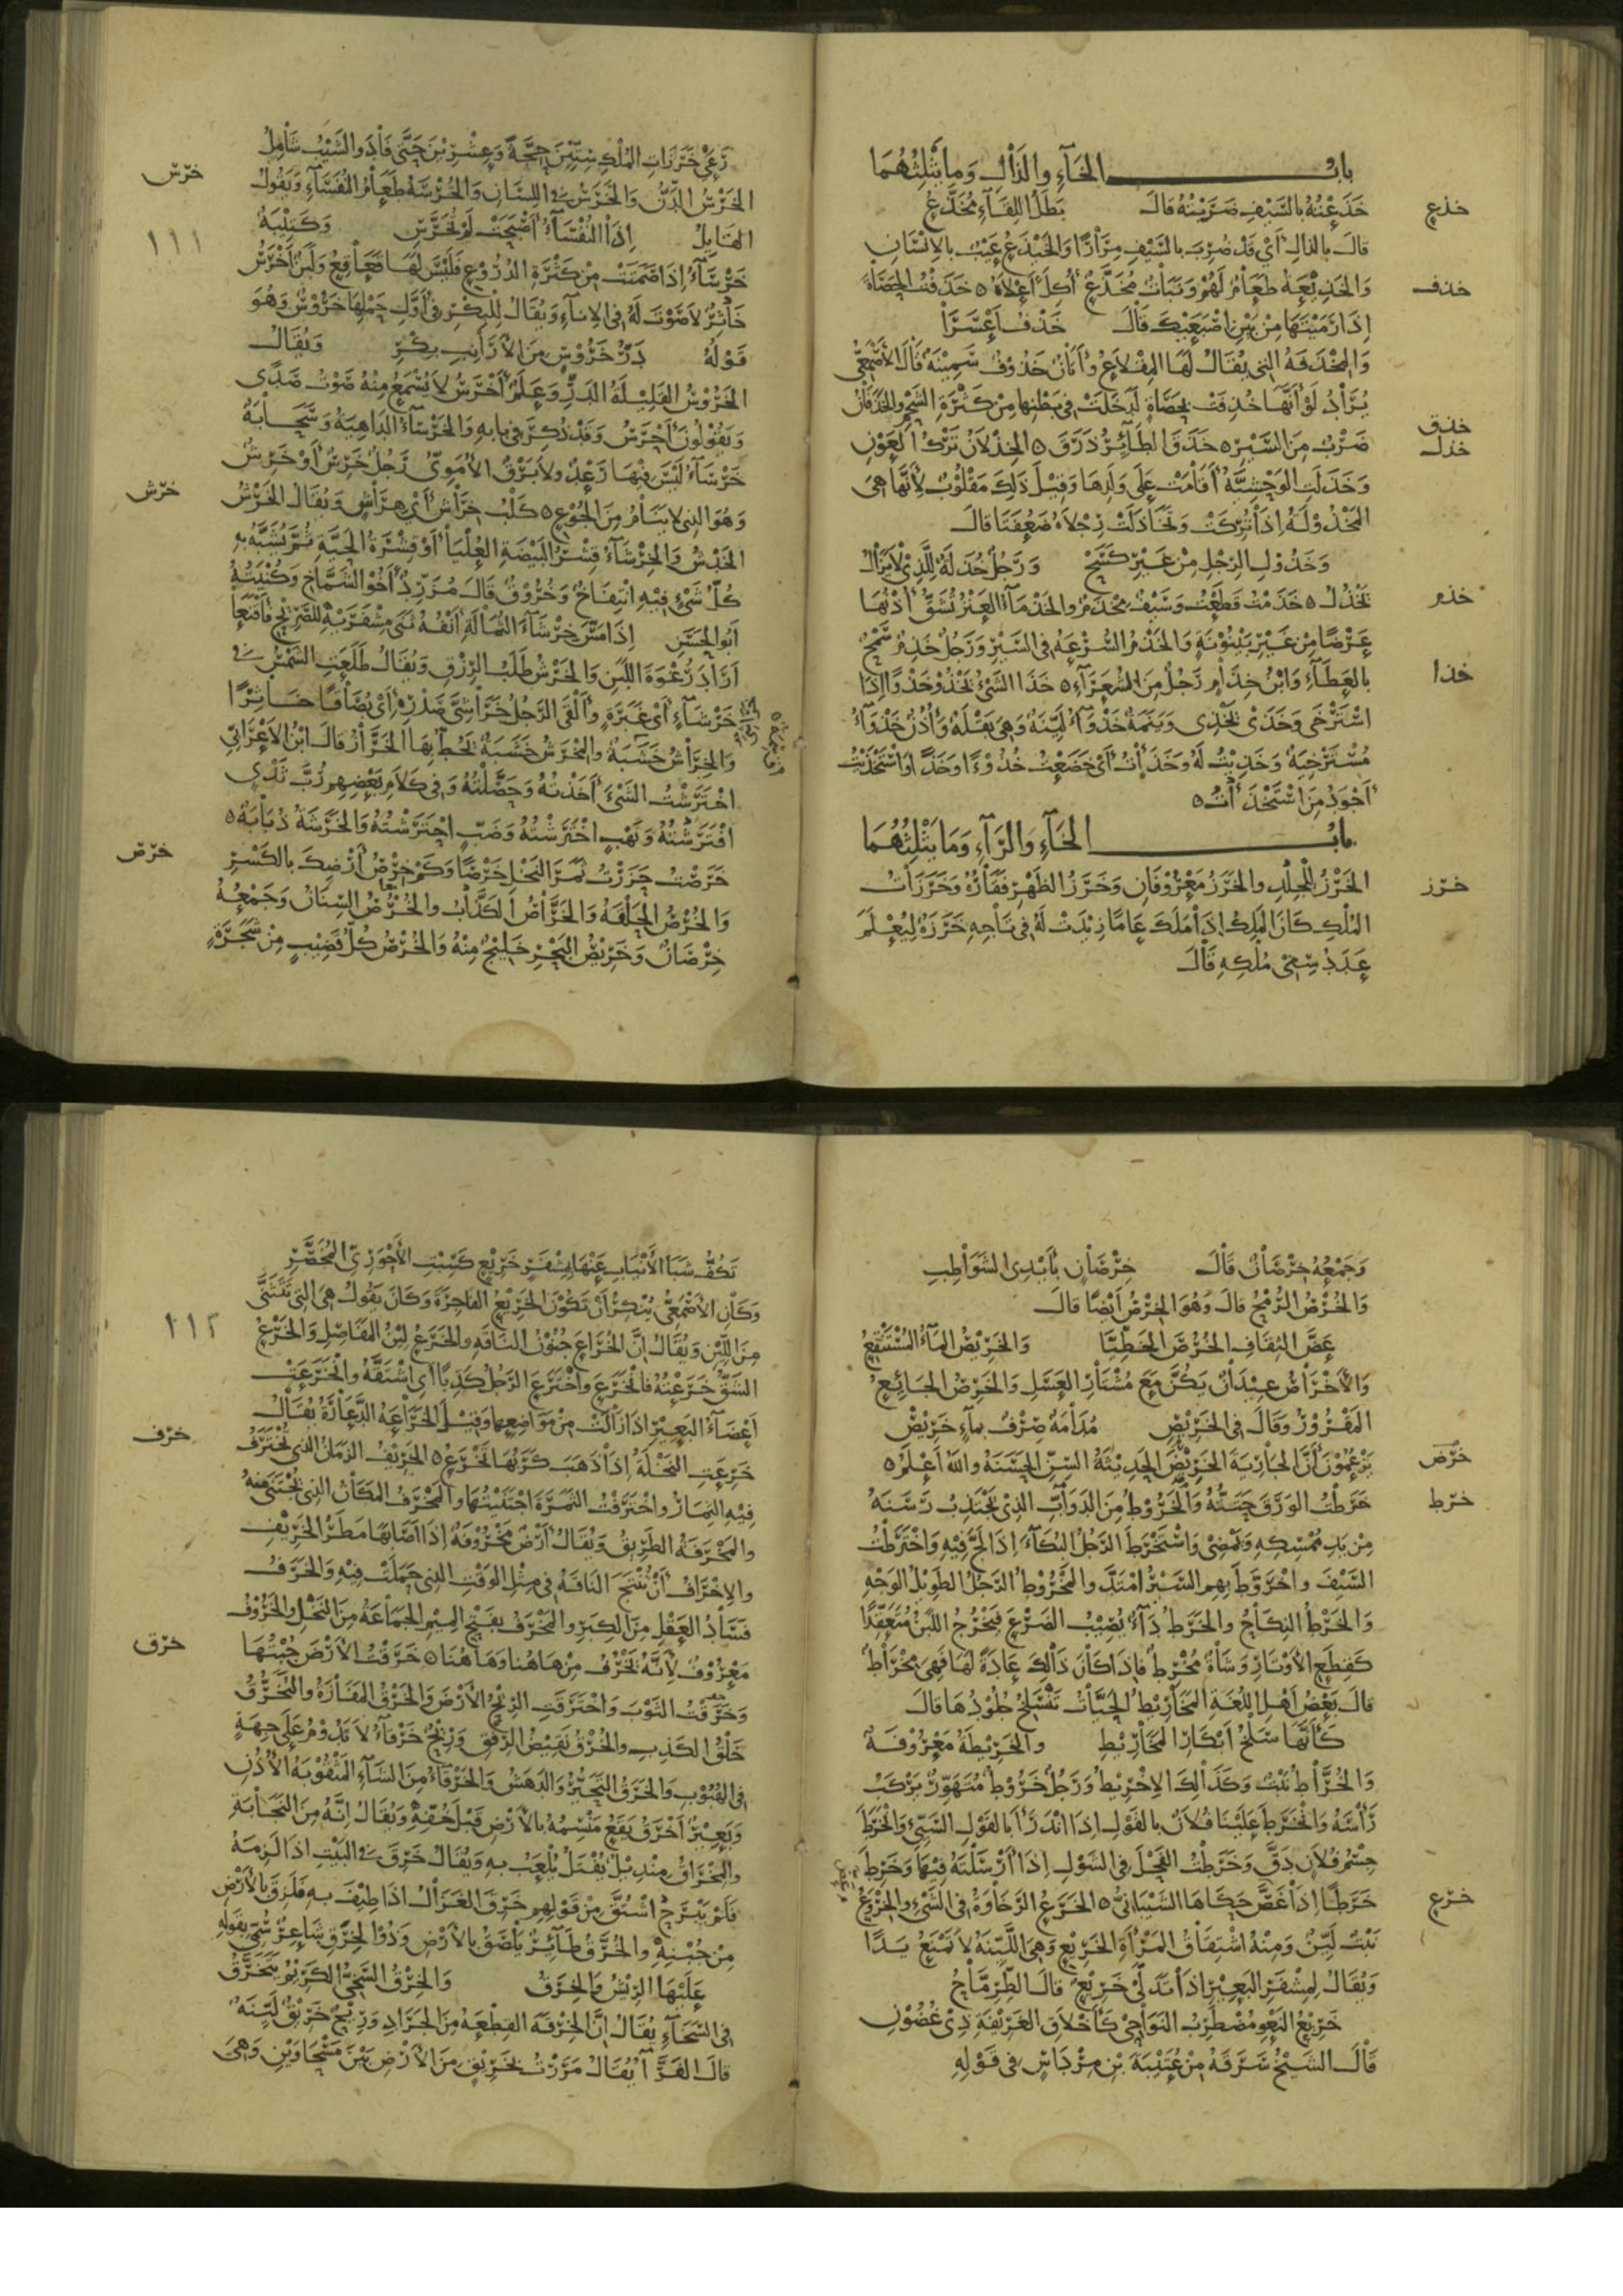 بابُ الخَآءِ والذَّالِ وَمايَثْلِثُهُمَا
خذع
خَذَعْتُهُ بالسَّيْفِ ضَرَبْتُهُ قالَ بَطَلُ اللِقَآءِ مُخَذَّعُ
قالَ بالذالِ أَيْ قَدْ ضُرِبَ بالسَّيْفِ مِرَارًا وَالخَيْذَعُ عَيْبٌ بالإِنْسَانِ
خذف
وَالخَذِيْعَةُ طَعَامٌ لَهُمْ وَنَبَاتٌ مُخَذَّعٌ أُكِلَ أَعْلاَهُ ٥ خَذَفْتُ الحَصَاةَ
إِذَا رَمَيْتَهَا مِنْ بَيْنِ اصْبَعَيْكَ قَالَ خَذْفُ أَعْسَرَا
وَالمِخْذَفَةُ التي يُقَالُ لَهَا المِقْلاَعُ وَأَتَانٌ خَذُوْفٌ سَمِيْنَةٌ قَالَ الأَصْمَعِيُّ
يُرَادُ لَوْ أَنَّهَا خُذِفَتْ بِحَصَاةٍ لَدَخَلَتْ فِي بَطْنِها مِنْ كَثْرَةِ الشَّحْمِ والخَذَفَانُ
خذق
خذل
ضَرْبٌ مِنَ السَّيْرِ ٥ خَذَقَ الطَآئِرُ ذَرَقَ ٥ الخِذْلاَنُ تَرْكُ العَوْنِ
وَخَذَلَتِ الوَحْشِيَّةُ أَقَامَتْ عَلَى وَلَدِهَا وَقِيْلَ ذَلِكَ مَقْلُوْبٌ لأَنَّهَا هِيَ
المَخْذُوْلَةُ إِذَا تُرِكَتْ وَتَخَاذَلَتْ رِجْلاَهُ ضَعُفَتَا قَالَ
وَخَذُوْلِ الرِجْلِ مِنْ غَيْرِ كَسَحْ وَرَجُلٌ خُذَلَةٌ لِلَّذِيْ لاَيَزَالُ
خذم
يَخْذُلُ ٥ خَذَمْتُ قَطَعْتُ وَسَيْفٌ مِخْذَمٌ والخَذْمَآءُ العَنْزُ تُشَقُّ أُذْنُهَا
عَرْضًا مِنْ غَيْرِ بَيْنُوْنَةٍ وَالخَذَمُ السُّرْعَةُ فِي السَّيْرِ وَرَجُلٌ خَذِمٌ سَمْحٌ
خذا
بالعَطَآءِ وَابْنُ خِذَامٍ رَجُلٌ مِنَ الشُعَرَآءِ ٥ خَذَا الشَيْءُ يَخْذُوْ خَذْوًا إِذَا
اسْتَرْخَى وَخَذَى يَخْذِي وَيَنَمَةٌ خَذْوَآءُ لَيِّنَةٌ وَهِيَ بَقْلَةٌ وَأُذُنٌ خَذْوَآءُ
مُسْتَرْخِيَةٌ وَخَذِيْتُ لَهُ وَخَذَأْتُ أَيْ خَضَعْتُ خُذُوْءًا وَخَذًا وَاسْتَخْذَيْتُ
أَجْوَدُ مِنَ اسْتَخْذَأْتُ ٥
بابُ الخَآءِ والرَّآءِ وَمَايَثْلِثُهُمَا
خرز
الخَرْزُ لِلْجِلْدِ والخَرَزُ مَعْرُوْفَانِ وَخَرَزُ الظَهْرِ فَقَارُهُ وَخَرَزَاتُ
المُلْكِ كَانَ المَلِكُ إِذَا مَلَكَ عَامًا زِيْدَتْ لَهُ فِي تَاجِهِ خَرَزَةٌ لِيُعْلَمَ
عَدَدُ سِنِي مُلْكِهِ قَالَ
رَعَى خَرَزَاتِ المُلْكِ سِتِّيْنَ حِجَّةً وَعِشْرِيْنَ حَتَّى فَادَ والشَيْبُ شَامِلُ
خرس
الخَرْسُ الدَّنُّ وَالخَرَسُ في اللِسَانِ وَالخُرْسَةُ طَعَامُ النُفَسَآءِ وَيَقُوْلُ
١١١
القَايِلُ إِذَا النُفَسَآءُ أَصْبَحَتْ لَمْ تُخَرَّسِ وَكَتِيْبَةٌ
خَرْسَآءُ إِذَا صَمَتَتْ مِنْ كَثْرَةِ الدُرُوْعِ فَلَيْسَ لَهَا قَعَاقِعُ وَلَبَنٌ أَخْرَسُ
خَاثِرٌ لاَصَوْتَ لَهُ فِي الإِنَآءِ وَيُقَالُ لِلْبِكْرِ فِي أَوَّلِ حَمْلِهَا خَرُوْسٌ وَهُوَ
قَوْلُهُ دَرُّ خَرُوْسٍ مِنَ الأَرَانِبِ بِكْرِ وَيُقَالُ
الخَرُوْسُ القَلِيْلَةُ الدَرِّ وَعَلَمٌ أَخْرَسُ لاَيُسْمَعُ مِنْهُ صَوْتُ صَدًى
وَيَقُوْلُوْنَ أَحْرَسُ وَقَدْ ذُكِرَ فِي بابِهِ وَالخَرْسَآءُ الدَاهِيَةُ وَسَحَابَةٌ
خَرْسَآءُ لَيْسَ فِيْهَا رَعْدٌ ولاَبَرْقٌ الأُمَوِيُّ رَجُلٌ خَرِسٌ أَوْ خَرِشٌ
خرش
وَهُوَ الذي لاَيَنَامُ مِنَ الجُوْعِ ٥ كَلْبُ خِرَاشٍ أَيْ هِرَاشٍ وَيُقَالُ الخَرْشُ
الخَدْشُ وَالخِرْشَآءُ قِشْرُ البَيْضَةِ العُلْيَا أَوْ قِشْرَةُ الحَيَّةِ ثُمَّ يُشَبَّهُ بِهِ
كُلُّ شَيْءٍ فِيْهِ انْتِفَاخٌ وَخُرُوْقٌ قَالَ مُزَرِّدٌ أَخُوْ الشَمَّاخِ وَكُنْيَتُهُ
أَبُو الحَسَنِ إِذَا مَسَّ خِرْشَآءَ الثُمَالَةِ أَنْفُهُ ثَنَى مِشْفَرَيْهِ لِلصَّرِيْحِ فَأَقْنَعَا
أَرَادَ رُغْوَةَ اللَبَنِ وَالخَرْشُ طَلَبُ الرِزْقِ وَيُقَالُ طَلَعَتِ الشَمْسُ في
خِرْشَآءَ أَيْ غَبَرَةٍ وأَلْقَى الرَجُلُ خَرَاشِيَّ صَدْرِهِ أَيْ بُصَاقًا خَاثِرًا
وَالخِرَاشُ خَشَبَةٌ والمِخْرَشُ خَشَبَةٌ يَخُطُّ بِهَا الخَرَّازُ قَالَ ابْنُ الأَعْرَابِيّ
اخْتَرَشْتُ الشَيْءَ أَخَذْتُهُ وَحَصَّلْتُهُ وَفِي كَلاَمِ بَعْضِهِمْ رُبَّ ثَدْيٍ
افْتَرَشْتُهُ وَنَهْبٍ اخْتَرَشْتُهُ وَضَبٍّ احْتَرَشْتُهُ وَالخَرَشَةُ ذُبَابَةٌ ٥
خرص
خَرَصْتُ حَزَرْتُ ثَمَرَ النَخْلِ خَرْصًا وَكَمْ خِرْصُ أَرْضِكَ بالكَسْرِ
وَالخُرْصُ الحَلْقَةُ وَالخَرَّاصُ الكَذَّابُ والخُرْصُ السِّنَانُ وَجَمْعُهُ
خِرْصَانٌ وَخَرِيْصُ البَحْرِ خَلِيْجٌ مِنْهُ وَالخُرْصُ كُلُّ قَضِيْبٍ مِنْ شَجَرَةٍ
وَجَمْعُهُ خِرْصَانٌ قَالَ خِرْصَانٌ بأَيْدِي الشَوَاطِبِ
وَالخُرْصُ الرُمْحُ قالَ وَهُوَ الخِرْصُ أَيْضًا قالَ
عَضَّ الثِقَافِ الخُرُصَ الخَطِّيَّا وَالخَرِيْصُ المَآءُ المُسْتَنْقَعُ
وَالأَخْرَاصُ عِيْدَانٌ يَكُنَّ مَعَ مُشْتَارِ العَسَلِ وَالخَرِصُ الجَائِعُ
المَقْرُوْرُ وَقَالَ فِي الخَرِيْصِ مُدَامَةٌ صِرْفٌ بِمَآءٍ خَرِيْصْ
خرض
يَزْعُمُوْنَ أَنَّ الجَارِيَةَ الخَرِيْضَ الحَدِيْثَةُ السِنِّ الحَسَنَةُ واللهُ أَعْلَمُ ٥
خرط
خَرَطْتُ الوَرَقَ حَتَتُّهُ وَالخَرُوْطُ مِنَ الدَوَابِّ الذِيْ يَجْتَذِبُ رَسَنَهُ
مِنْ يَدِ مُمْسِكِهِ وَيَمْضِيْ وَاسْتَخْرَطَ الرَجُلُ البُكَآءَ إِذَا لَجَّ فِيْهِ وَاخْتَرَطْتُ
السَّيْفَ واخْرَوَّطَ بِهِمِ السَّيْرُ امْتَدَّ والمَخْرُوْطُ الرَجُلُ الطَوِيْلُ الوَجْهِ
وَالخَرْطُ النِكَاحُ والخَرَطُ دَآءٌ يُصِيْبُ الضَرْعَ فَيَخْرُجُ اللَبَنُ مُتَعَقِّدًا
كَقِطَعِ الأَوْتَارِ وَشَاةٌ مُخْرِطٌ فإِذَا كَانَ ذَالِكَ عَادَةً لَهَا فَهِيَ مِخْرَاطٌ
قالَ بَعْضُ أَهْلِ اللُغَةِ المَخَارِيْطُ الحَيَّاتُ تَنْسَلِخُ جُلُوْدُهَا قالَ
كَأَنَّهَا سَلْخُ أَبْكَارِ المَخَارِيْطِ والخَرِيْطَةُ مَعْرُوْفَةٌ
وَالخُرَّاطُ نَبْتٌ وَكَذَالِكَ الإِخْرِيْطُ وَرَجُلٌ خَرُوْطٌ مُتَهَوِّرٌ يَرْكَبُ
رَأْسَهُ وَانْخَرَطَ عَلَيْنَا فُلاَنٌ بِالقَوْلِ إِذَا انْدَرَأَ بالقَوْلِ السَّيِّئ وانْخَرَطَ
جِسْمُ فُلاَنٍ دَقَّ وَخَرَطْتُ الفَحْلَ فِي الشَوْلِ إِذَا أَرْسَلْتَهُ فِيْهَا وَخَرِطَ
خرع
خَرَطًا إِذَا غَصَّ حَكَاهَا الشَيْبَانِيُّ ٥ الخَرَعُ الرَخَاوَةُ فِي الشَيْءِ والخِرْوَعُ
نَبْتٌ لَيِّنٌ وَمِنْهُ اشْتِقَاقُ المَرْأَةِ الخَرِيْعِ وَهِيَ اللَّيِّنَةُ لاَتَمْنَعُ يَدًا
وَيُقَالُ لِمِشْفَرِ البَعِيْرِ إِذَا تَدَلَّى خَرِيْعٌ قالَ الطِّرِمَّاحُ
خَرِيْعَ النَعْوِ مُضْطَرِبَ النَوَاحِيْ كَأَخْلاَقِ الغَرِيْفَةِ ذِيْ غُضُوْنِ
قَالَ الشَيْخُ سَرَقَهُ مِنْ عُتَيْبَةَ بْنِ مِرْدَاسٍ فِي قَوْلِهِ
تَكُفُّ شَبَا الأَنْيَابِ عَنْهَا بِمِشْفَرٍ خَرِيْعٍ كَسِبْتِ الأَحْوَرِيِّ المُخَصَّرِ
وَكَانَ الأَصْمَعِيُّ يُنْكِرُ أَنْ تَكُوْنَ الخَرِيْعُ الفَاجِرَةَ وَكَانَ يَقُوْلُ هِيَ التِي تَتَثَنَّى
١١٢
مِنَ اللِّيْنِ وَيُقَالُ إِنَّ الخُرَاعَ جُنُوْنُ النَاقَةِ والخَرَعُ لِيْنُ المَفَاصِلِ وَالخَرْعُ
الشَقُّ خَرَعْتُهُ فَانْخَرَعَ وَاخْتَرَعَ الرَجُلُ كَذِبًا أَي اشْتَقَّهُ وانْخَرَعَتْ
أَعْضَآءُ البَعِيْرِ إِذَا زَالَتْ مِنْ مَوَاضِعِهَا وَقِيْلَ الخَرَاعَةُ الدَّعَارَةُ يُقَالُ
خرف
خَرِعَتِ النَخْلَةُ إِذَا ذَهَبَ كَرَبُهَا تَخْرَعُ ٥ الخَرِيْفُ الزَمَانُ الذي تُخْتَرَفُ
فِيْهِ الثِمَارُ وَاخْتَرَفْتُ الثَمَرَةَ اجْتَنَيْتُهَا وَالمَخْرَفُ المَكَانُ الذِي يُجْتَنَى مِنْهُ
والمَخْرَفَةُ الطَرِيْقُ وَيُقَالُ أَرْضٌ مَخْرُوْفَةٌ إِذَا أَصَابَهَا مَطَرُ الخَرِيْفِ
والإِخْرَافُ أَنْ تُنْتَجَ النَاقَةُ فِي مِثْلِ الوَقْتِ الذِي حَمَلَتْ فِيْهِ وَالخَرَفُ
فَسَادُ العَقْلِ مِنَ الكِبَرِ والمَخْرَفُ بِفَتْحِ المِيْمِ الجَمَاعَةُ مِنَ النَخْلِ والخَرُوْفُ
خرق
مَعْرُوْفٌ لأَنَّهُ يَخْرُفُ مِنْ هَاهُنَا وَهَاهُنَا ٥ خَرَقْتُ الأَرْضَ جُبْتُهَا
وَخَرَّقْتُ الثَوْبَ وَاخْتَرَقَتِ الرِيْحُ الأَرْضَ وَالخَرْقُ المَفَازَةُ والتَخَرُّقُ
خَلْقُ الكَذِبِ والخُرْقُ نَقِيْضُ الرِفْقِ وَرِيْحٌ خَرْقَآءُ لاَتَدُوْمُ عَلَى جِهَةٍ
فِي الهُبُوْبِ وَالخَرَقُ التَحَيُّرُ والدَهَشُ وَالخَرْقَآءُ مِنَ الشَآءِ المَثْقُوْبَةُ الأُذُنِ
وَبَعِيْرٌ أَخْرَقُ يَقَعُ مَنْسِمُهُ بالأَرْضِ قَبْلَ خُفِّهِ وَيُقَالُ إِنَّهُ مِنَ النَجَابَةِ
والمِخْرَاقُ مِنْدِيْلٌ يُفْتَلُ يُلْعَبُ بِهِ وَيُقَالُ خَرِقَ في البَيْتِ إِذَا لَزِمَهُ
فَلَمْ يَبْرَحْ اشْتُقَّ مِنْ قَوْلِهِمْ خَرِقَ الغَزَالُ إِذَا طِيْفَ بِهِ فَلَزِقَ بِالأَرْضِ
مِنْ جُبْنِهِ والخُرَّقُ طَآئِرٌ يَلْصَقُ بِالأَرْضِ وَذُوْ الخِرَقِ شَاعِرٌ سُمِّيَ بِقَوْلِهِ
عَلَيْهَا الرِيْشُ وَالخِرَقُ وَالخِرْقُ السَّخِيُّ الكَرِيْمُ يَتَخَرَّقُ
فِي السَّخَآءِ يُقَالُ إِنَّ الخِرْقَةَ القِطْعَةُ مِنَ الجَرَادِ وَرِيْحٌ خَرِيْقٌ لَيِّنَةٌ
قَالَ الفَرَّآءُ يُقَالُ مَرَرْتُ بِخَرِيْقٍ مِنَ الأَرْضِ بَيْنَ مَسْحَاوَيْنِ وَهِيَ